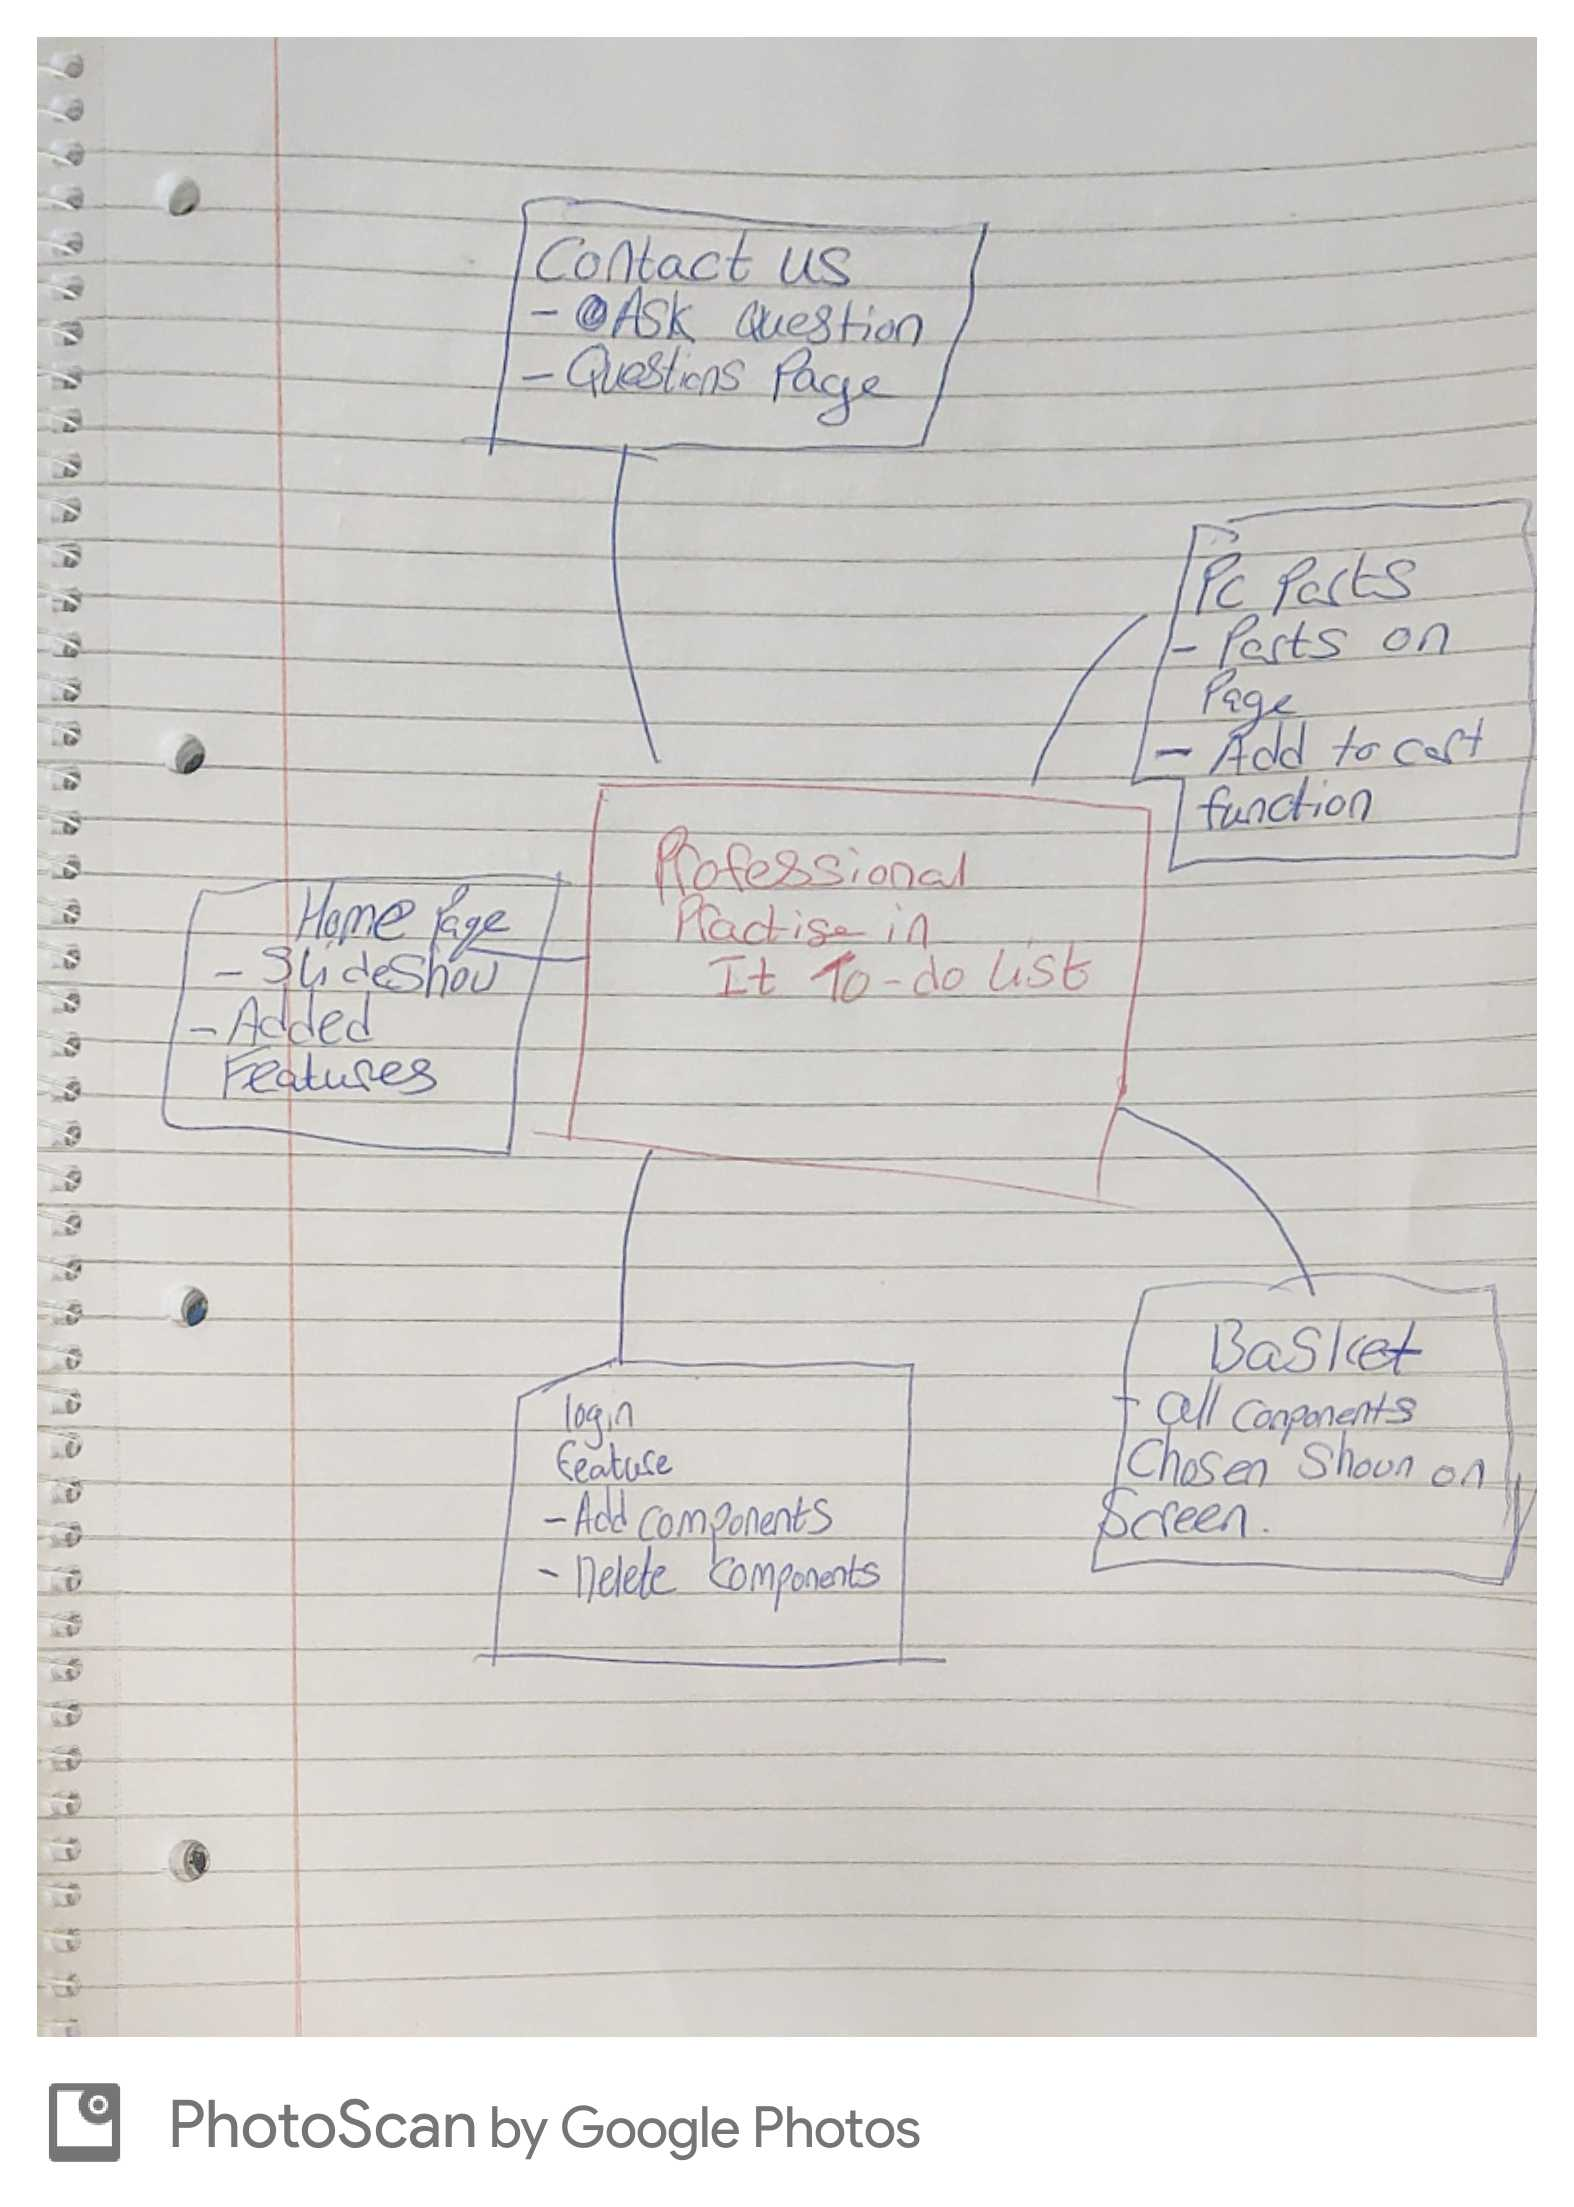 Contact us
- Ask Question
- Questions Page
Pc Parts
- Parts on
Page
- Add to cart
function
Professional
Practise in
It To-do list
Home Page
- Slideshow
- Added
Features
login
feature
- Add components
- Delete components
Basket
- all components
Chosen Shown on
Screen.
PhotoScan by Google Photos